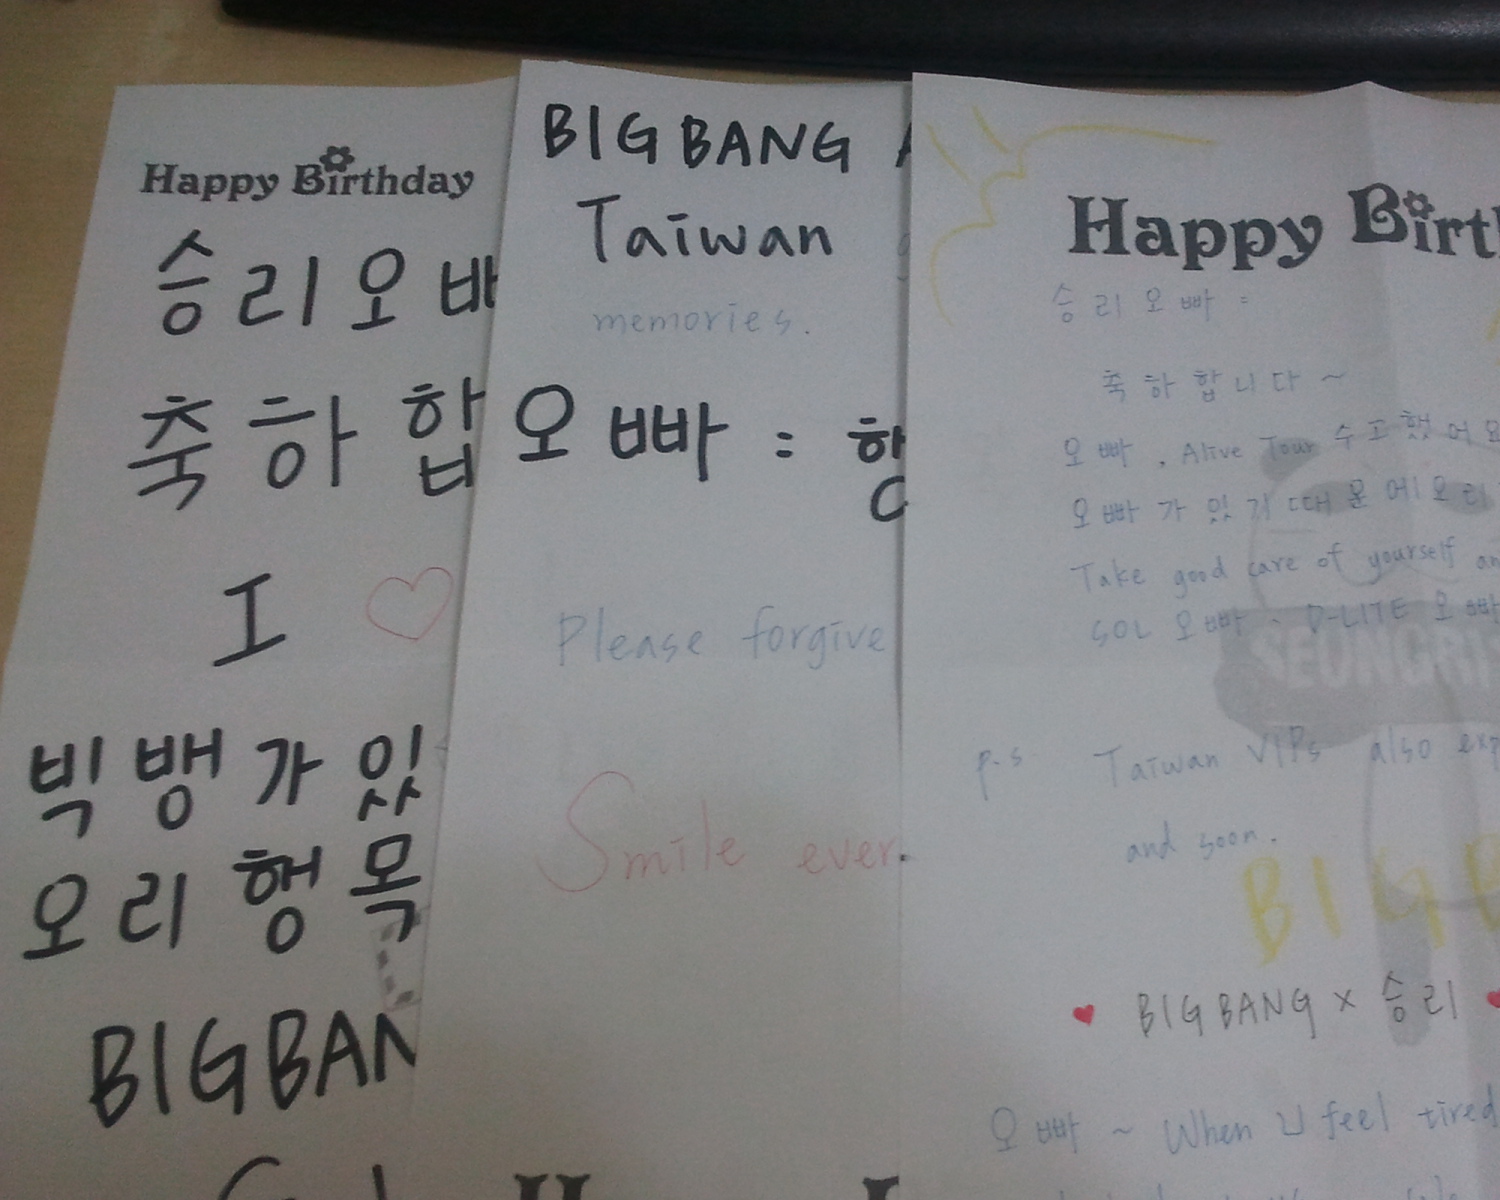 Happy Birthday
승리오빠
축하합
I
빅뱅가 있
오리행목
BIGBAN
BIGBANG
Taiwan
memories.
오빠 :
Please forgive
Smile ever
Happy Birt
승리오빠 :
축하합니다~
오빠, Alive Tour 수고했어요
오빠가 있기 때문에 오리
Take good care of yourself an
SOL 오빠、D-LITE 오빠
SEUNGRI
p.s Taiwan VIPs also exp
and soon.
BIGB
BIGBANG x 승리
오빠~ When U feel tired